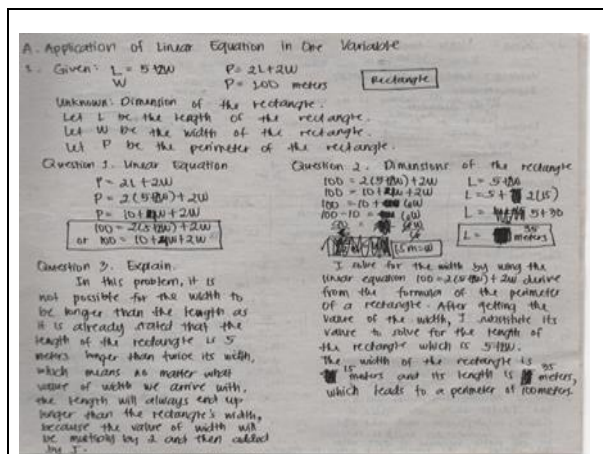 A. Application of Linear Equation in One Variable
1. Given: L = 5+2W P = 2L+2W
W P = 100 meters Rectangle
Unknown: Dimension of the rectangle.
Let L be the length of the rectangle.
Let W be the width of the rectangle.
Let P be the perimeter of the rectangle.
Question 1. Linear Equation
P = 2L + 2W
P = 2(5+2W) + 2W
P = 10 + 4W + 2W
100 = 2(5+2W) + 2W
or 100 = 10 + 4W + 2W
Question 3. Explain.
In this problem, it is
not possible for the width to
be longer than the length as
it is already stated that the
length of the rectangle is 5
meters longer than twice its width,
which means no matter what
value of width we arrive with,
the length will always end up
longer than the rectangle's width,
because the value of width will
be multiply by 2 and then added
by 5.
Question 2. Dimensions of the rectangle
100 = 2(5+2W) + 2W L = 5+2W
100 = 10 + 4W + 2W L = 5 + 2(15)
100 = 10 + 6W L = 5 + 30
100 - 10 = 6W L = 35 meters
90 = 6W
15m = W
I solve for the width by using the
linear equation 100 = 2(5+2W) + 2W derive
from the formula of the perimeter
of a rectangle. After getting the
value of the width, I substitute its
value to solve for the length of
the rectangle which is 5+2W.
The width of the rectangle is
15 meters and its length is 35 meters,
which leads to a perimeter of 100 meters.